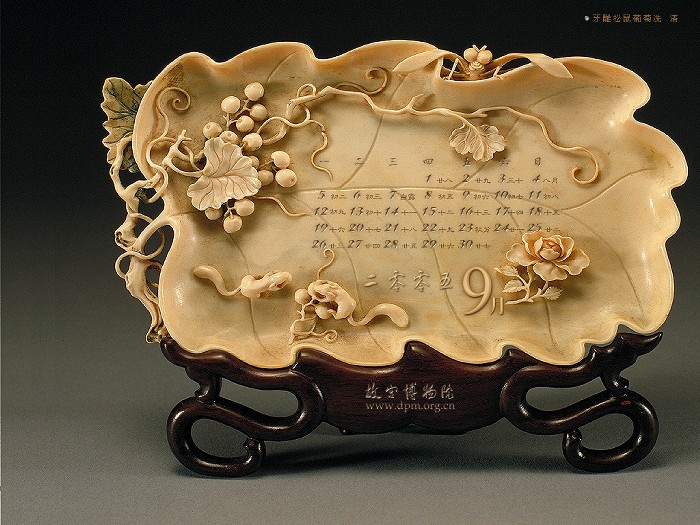 牙雕松鼠葡萄洗 清
一 二 三 四 五 六 日
1廿八 2廿九 3三十 4八月
5初二 6初三 7白露 8初五 9初六 10初七 11初八
12初九 13初十 14十一 15十二 16十三 17十四 18十五
19十六 20十七 21十八 22十九 23秋分 24廿一 25廿二
26廿三 27廿四 28廿五 29廿六 30廿七
二零零五 9月
故宫博物院
www.dpm.org.cn